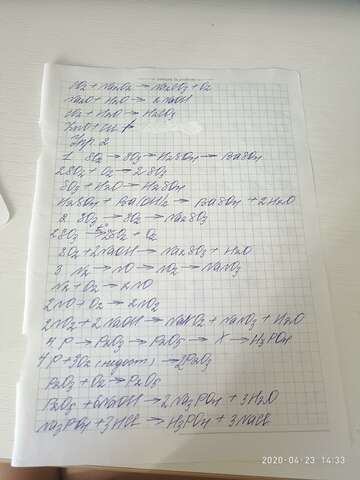 CO₂ + Na₂O₂ → Na₂CO₃ + O₂
Na₂O + H₂O → 2NaOH
CO₂ + H₂O → H₂CO₃
Упр. 2
1. SO₂ → SO₃ → H₂SO₄ → BaSO₄
2SO₂ + O₂ → 2SO₃
SO₃ + H₂O → H₂SO₄
H₂SO₄ + Ba(OH)₂ → BaSO₄ + 2H₂O
2. SO₃ → SO₂ → Na₂SO₃
2SO₃ → 2SO₂ + O₂
SO₂ + 2NaOH → Na₂SO₃ + H₂O
3. N₂ → NO → NO₂ → NaNO₃
N₂ + O₂ → 2NO
2NO + O₂ → 2NO₂
2NO₂ + 2NaOH → NaNO₂ + NaNO₃ + H₂O
4. P → P₂O₃ → P₂O₅ → X → H₃PO₄
4P + 3O₂ (недост) → 2P₂O₃
P₂O₃ + O₂ → P₂O₅
P₂O₅ + 6NaOH → 2Na₃PO₄ + 3H₂O
Na₃PO₄ + 3HCl → H₃PO₄ + 3NaCl
2020-04-23 14:33